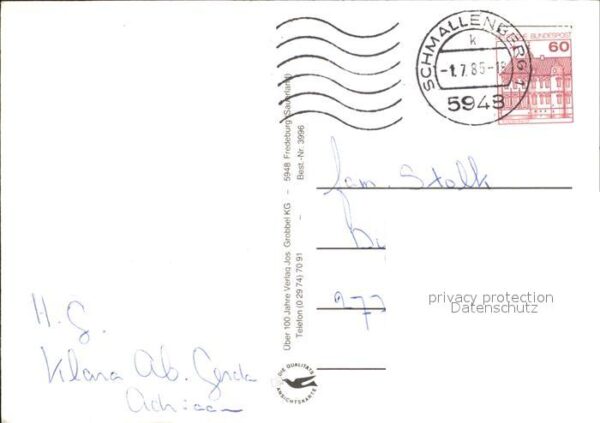 SCHMALLENBERG 1
k
-1.7.85-18
5948
DEUTSCHE BUNDESPOST
60
Über 100 Jahre Verlag Jos Grobbel KG - 5948 Fredeburg (Sauerland)
Telefon (0 29 74) 70 91 - Best.-Nr. 3996
Fam. Stolk
privacy protection
Datenschutz
H. G.
Klara Ab. Gerda
Adriaan
DIE QUALITÄTS
ANSICHTSKARTE